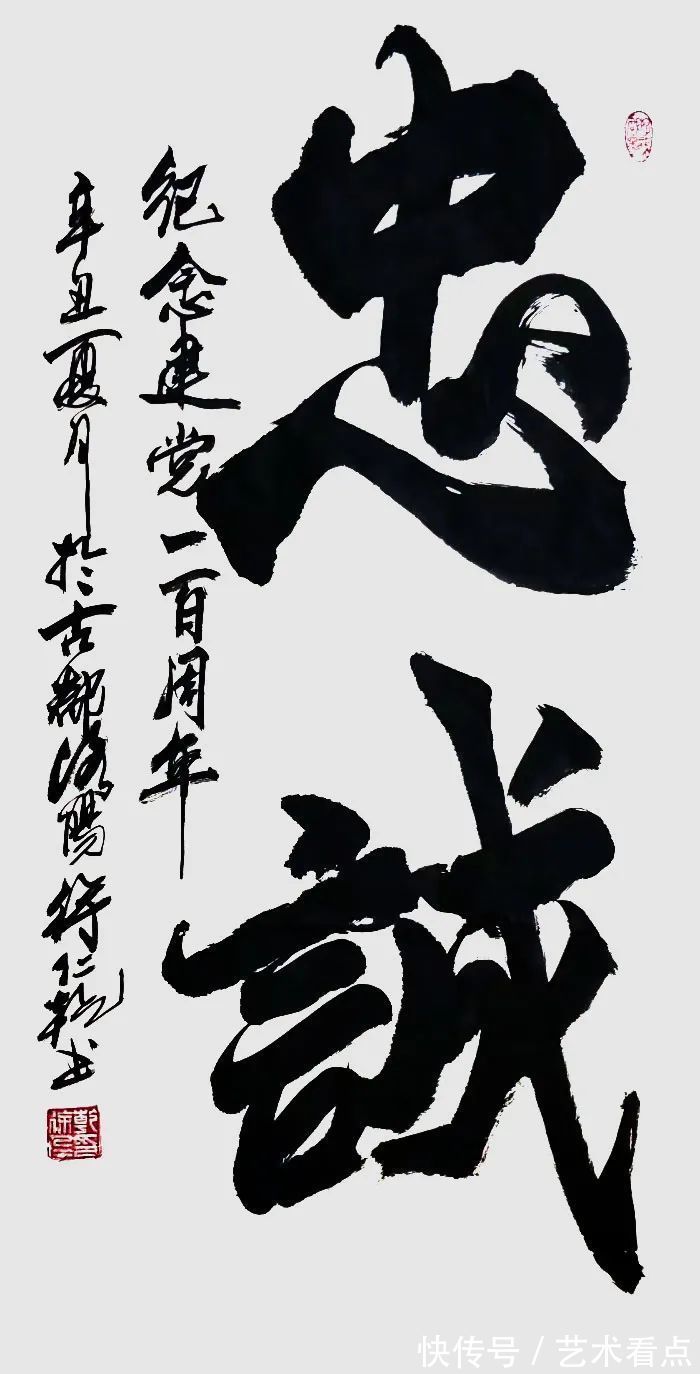 忠誠
纪念建党一百周年
辛丑夏月於古都洛陽徐仁乾书
快传号 / 艺术看点